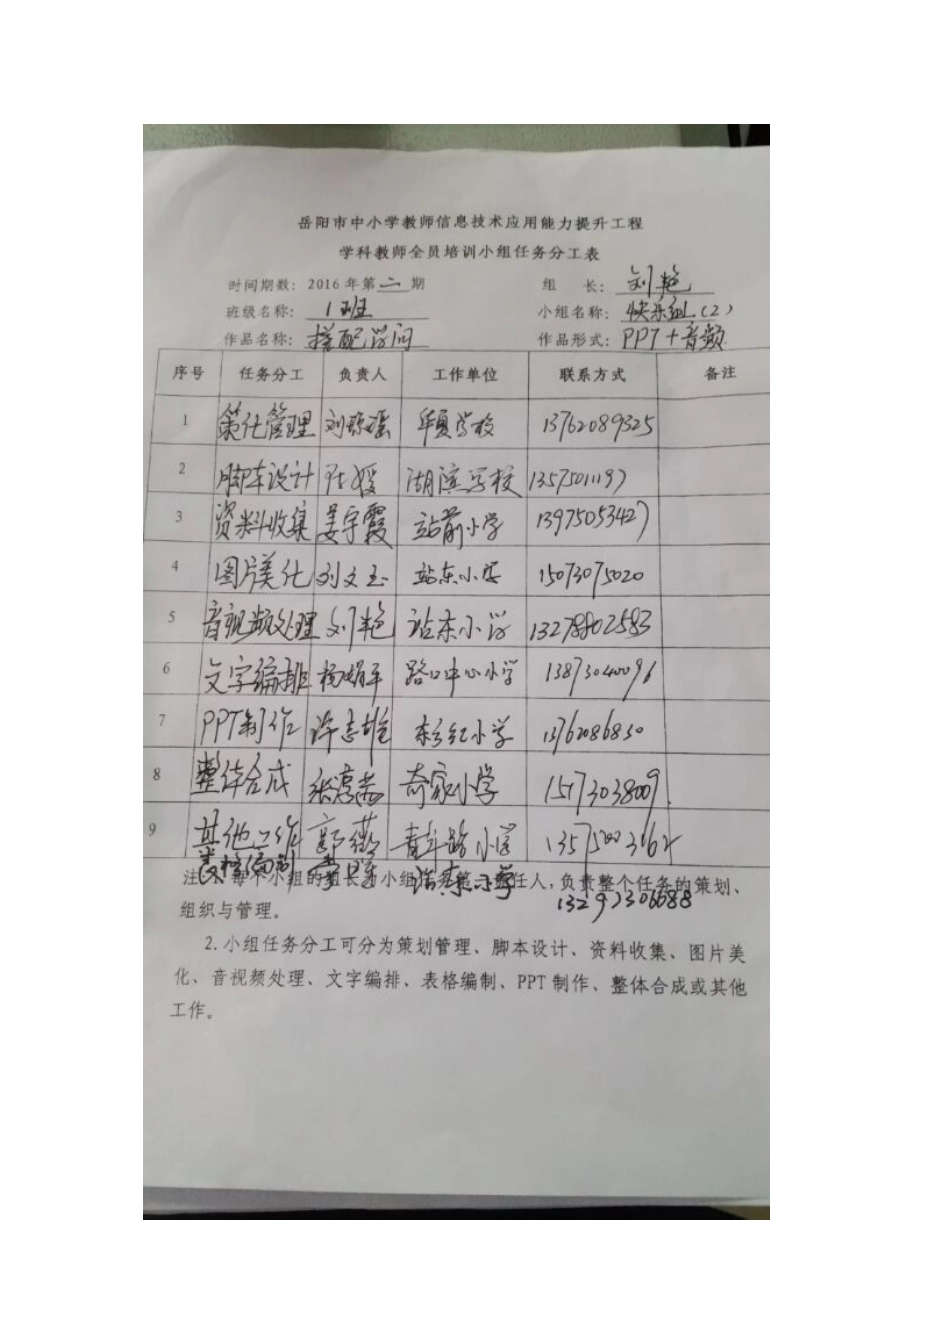 岳阳市中小学教师信息技术应用能力提升工程
学科教师全员培训小组任务分工表
时间期数：2016年第二期 组 长：刘艳
班级名称：1班 小组名称：快乐组（2）
作品名称：搭配学问 作品形式：PPT+音频
序号 任务分工 负责人 工作单位 联系方式 备注
1 策化管理 刘琼瑶 华夏学校 13762089325
2 脚本设计 阮媛 湖滨学校 13575011197
3 资料收集 姜宇霞 站前小学 13975053427
4 图片美化 刘文玉 站东小学 15073075020
5 音视频处理 刘艳 站东小学 13278802583
6 文字编排 杨娟平 路口中心小学 13873040096
7 PPT制作 许志雄 东红小学 1376086830
8 整体合成 奇家小学 15173038009
9 其他工作 郭薇 青年路小学 13575003162
表格编制 站东小学 13297306688
注：1.每个小组的组长为小组任务第一责任人，负责整个任务的策划、
组织与管理。
2.小组任务分工可分为策划管理、脚本设计、资料收集、图片美
化、音视频处理、文字编排、表格编制、PPT制作、整体合成或其他
工作。